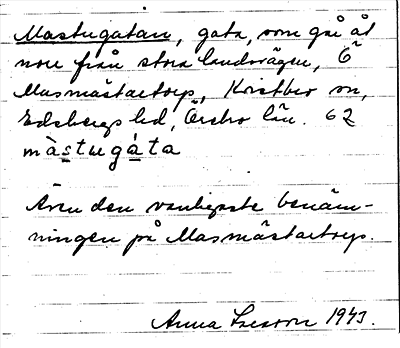 Mastugatan, gata, som går åt
norr från stora landsvägen, Ö
Masmästartorp, Kvistbro sn,
Edsbergs hd, Örebro län. 62
màstugàta
Även den vanligaste benäm-
ningen på Masmästartorp.
Anna 1943.